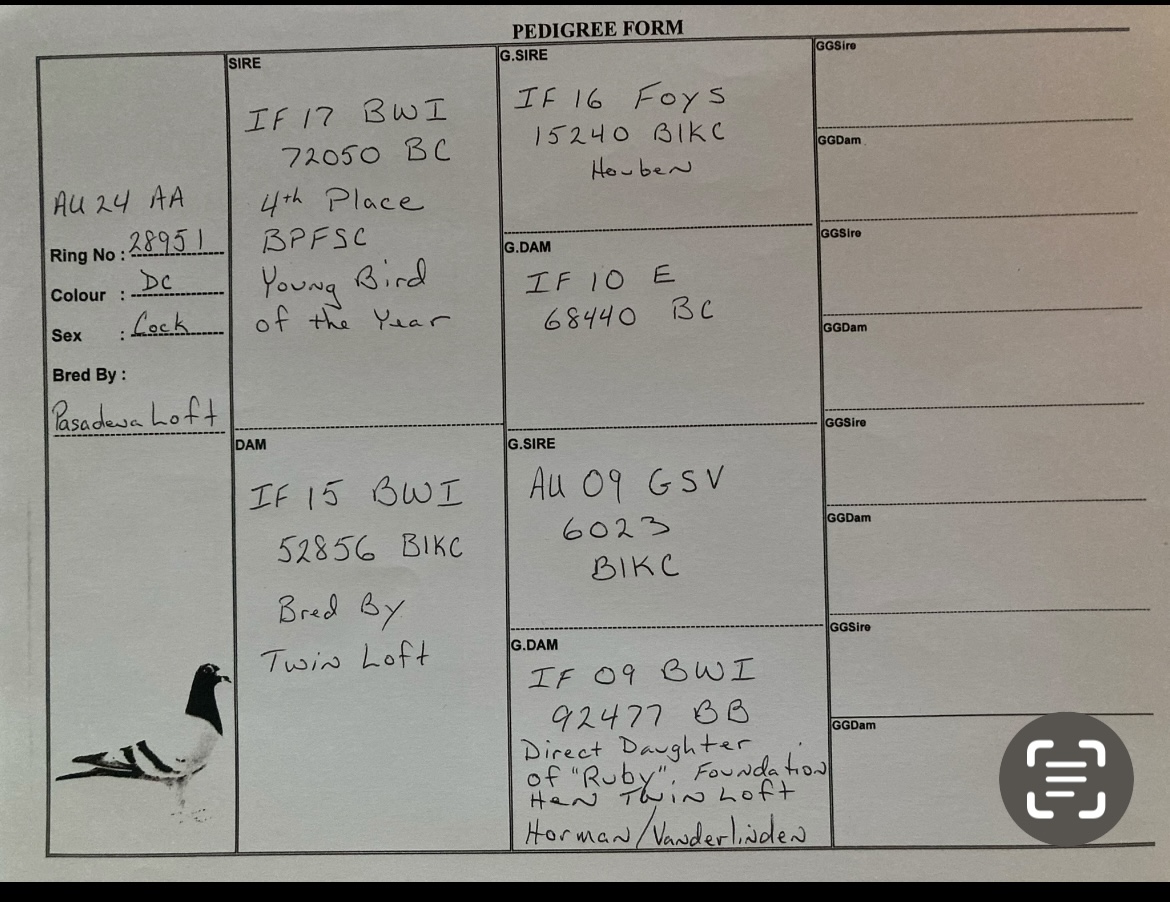 PEDIGREE FORM
AU 24 AA
Ring No : 28951
Colour : DC
Sex : Cock
Bred By :
Pasadena Loft
SIRE
IF 17 BWI
72050 BC
4th Place
BPFSC
Young Bird
of the Year
DAM
IF 15 BWI
52856 BlKC
Bred By
Twin Loft
G.SIRE
IF 16 Foys
15240 BlKC
Houben
G.DAM
IF 10 E
68440 BC
G.SIRE
AU 09 GSV
6023
BlKC
G.DAM
IF 09 BWI
92477 BB
Direct Daughter
of "Ruby". Foundation
Hen Twin Loft
Horman/Vanderlinden
GGSire
GGDam
GGSire
GGDam
GGSire
GGDam
GGSire
GGDam